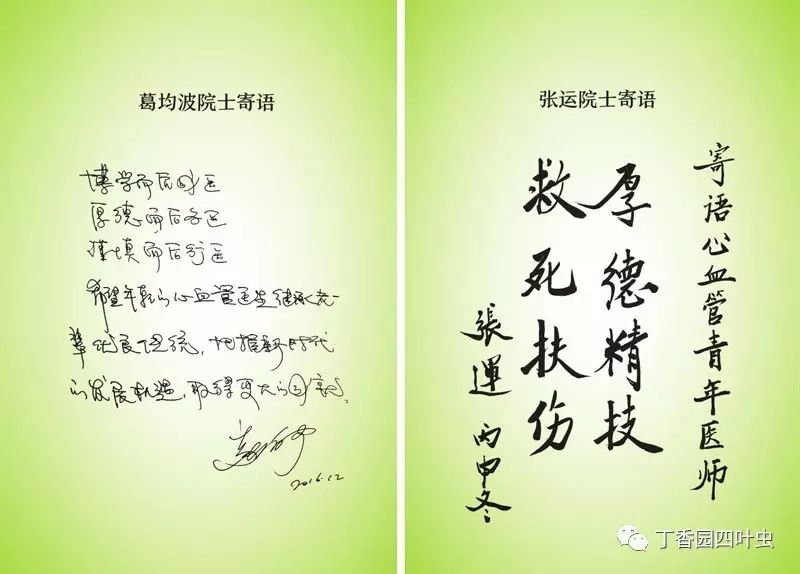 葛均波院士寄语
博学而后成医
厚德而后为医
谨慎而后行医
希望年轻的心血管医生继承老一
辈优良传统，把握新时代
的发展机遇，取得更大的
2016.12
张运院士寄语
寄语心血管青年医师
厚德精技
救死扶伤
張運 丙申冬
丁香园四叶虫